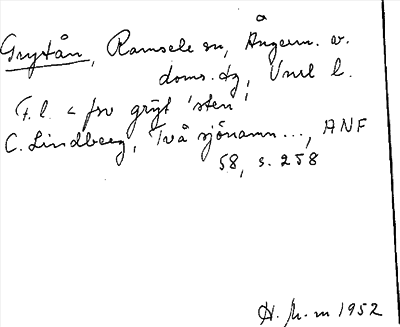 Grytån, Ramsele sn, Ångerm. v.
doms. dg, Vnl l.
F. l. < fsv gryt 'sten'
C. Lindberg, Två sjönamn ..., ANF
58, s. 258
1952